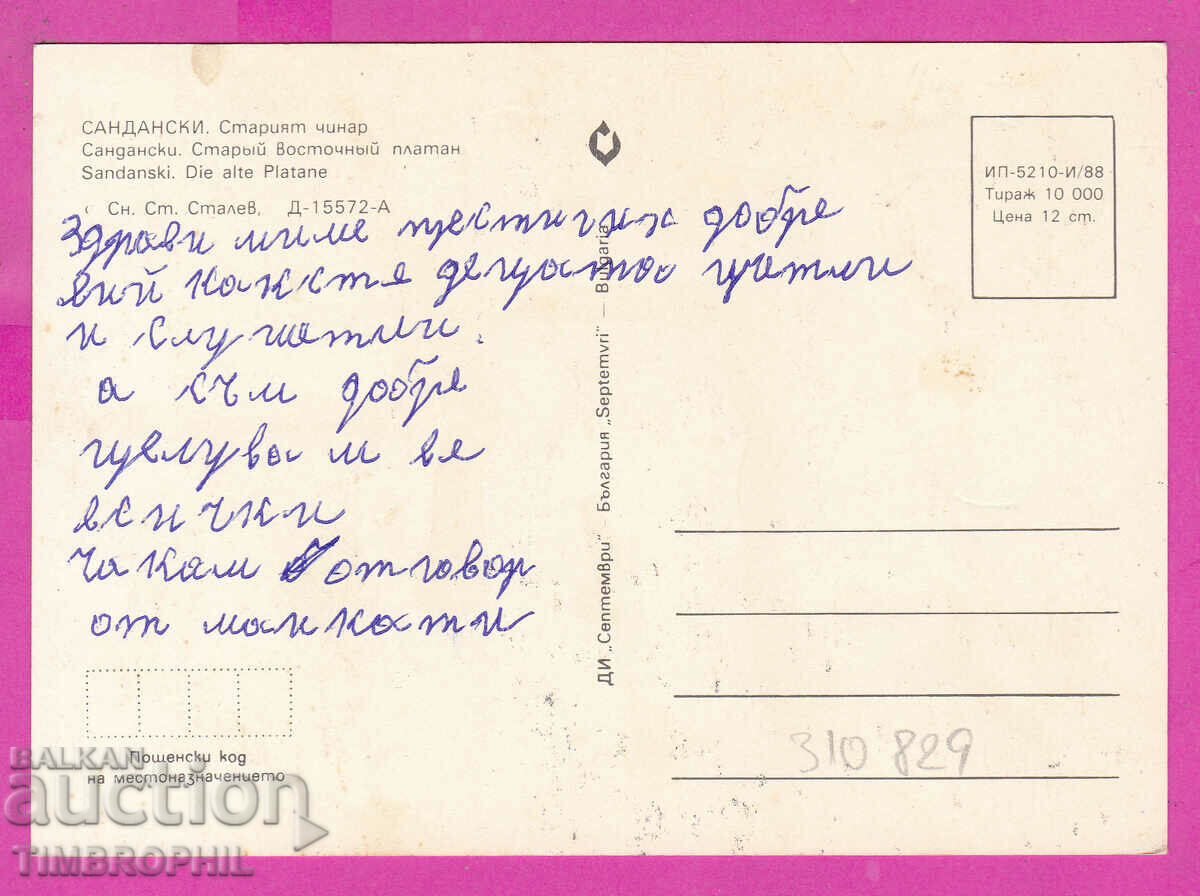 САНДАНСКИ. Старият чинар
Сандански. Старый восточный платан
Sandanski. Die alte Platane
Сн. Ст. Сталев, Д-15572-А
ИП-5210-И/88
Тираж 10 000
Цена 12 ст.
Здрави добре
вий как сте децата
и
а към добре
целува м ве
всички
Чакам отговор
от майкати
ДИ „Септември" - България „Septemvri" — Bulgaria
310 829
Пощенски код
на местоназначението
BALKAN
auction
TIMBROPHIL